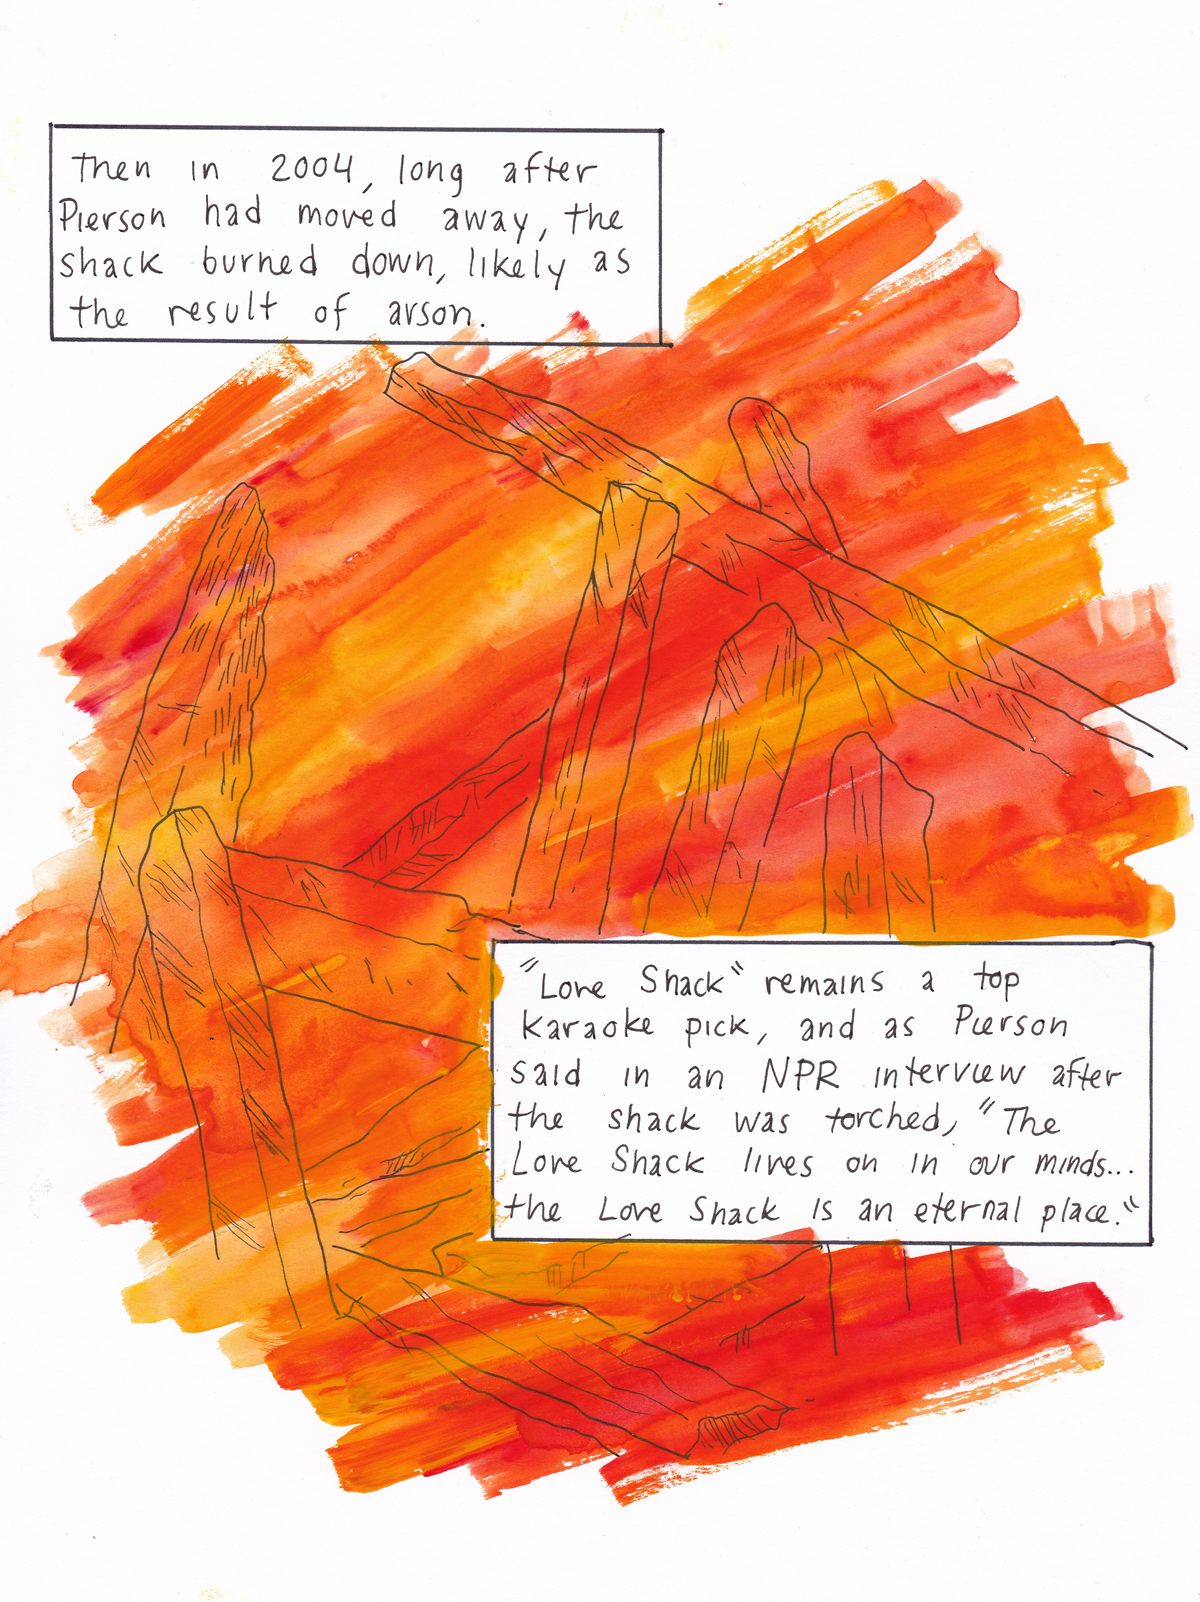 Then in 2004, long after
Pierson had moved away, the
shack burned down, likely as
the result of arson.
"Love Shack" remains a top
karaoke pick, and as Pierson
said in an NPR interview after
the shack was torched, "The
Love Shack lives on in our minds...
the Love Shack is an eternal place."